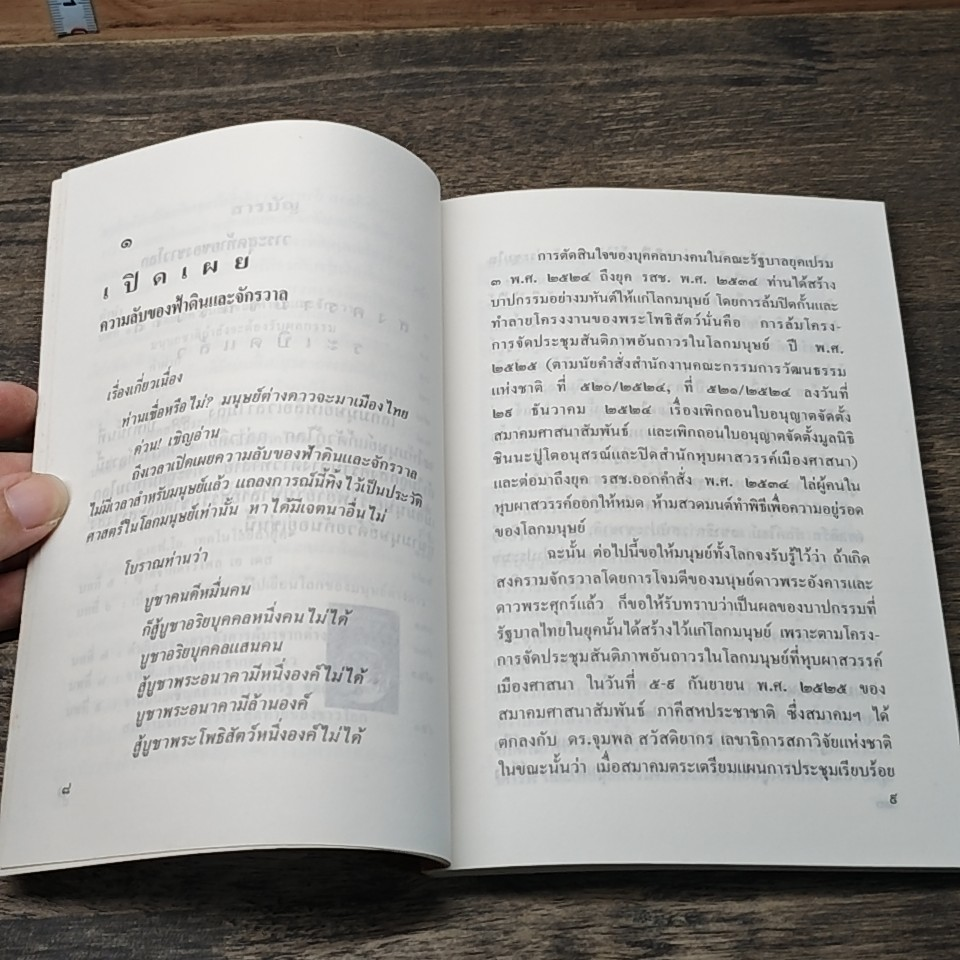 1
๑
เ ปิ ด เ ผ ย
ความลับของฟ้าดินและจักรวาล
เรื่องเกี่ยวเนื่อง
ท่านเชื่อหรือไม่? มนุษย์ต่างดาวจะมาเมืองไทย
ด่วน! เชิญอ่าน
ถึงเวลาเปิดเผยความลับของฟ้าดินและจักรวาล
ไม่มีเวลาสำหรับมนุษย์แล้ว แถลงการณ์นี้ทิ้งไว้เป็นประวัติ
ศาสตร์ในโลกมนุษย์เท่านั้น หาได้มีเจตนาอื่นไม่
โบราณท่านว่า
บูชาคนดีหมื่นคน
ก็สู้บูชาอริยบุคคลหนึ่งคนไม่ได้
บูชาอริยบุคคลแสนคน
สู้บูชาพระอนาคามีหนึ่งองค์ไม่ได้
บูชาพระอนาคามีล้านองค์
สู้บูชาพระโพธิสัตว์หนึ่งองค์ไม่ได้
๘
การตัดสินใจของบุคคลบางคนในคณะรัฐบาลยุคเปรม
๓ พ.ศ. ๒๕๒๔ ถึงยุค รสช. พ.ศ. ๒๕๓๔ ท่านได้สร้าง
บาปกรรมอย่างมหันต์ให้แก่โลกมนุษย์ โดยการล้มปิดกั้นและ
ทำลายโครงงานของพระโพธิสัตว์นั่นคือ การล้มโครง-
การจัดประชุมสันติภาพอันถาวรในโลกมนุษย์ ปี พ.ศ.
๒๕๒๕ (ตามนัยคำสั่งสำนักงานคณะกรรมการวัฒนธรรม
แห่งชาติ ที่ ๕๒๐/๒๕๒๔, ที่ ๕๒๑/๒๕๒๔ ลงวันที่
๒๙ ธันวาคม ๒๕๒๔ เรื่องเพิกถอนใบอนุญาตจัดตั้ง
สมาคมศาสนาสัมพันธ์ และเพิกถอนใบอนุญาตจัดตั้งมูลนิธิ
ชินนะปูโตอนุสรณ์และปิดสำนักหุบผาสวรรค์เมืองศาสนา)
และต่อมาถึงยุค รสช.ออกคำสั่ง พ.ศ. ๒๕๓๔ ไล่ผู้คนใน
หุบผาสวรรค์ออกให้หมด ห้ามสวดมนต์ทำพิธีเพื่อความอยู่รอด
ของโลกมนุษย์
ฉะนั้น ต่อไปนี้ขอให้มนุษย์ทั้งโลกจงรับรู้ไว้ว่า ถ้าเกิด
สงครามจักรวาลโดยการโจมตีของมนุษย์ดาวพระอังคารและ
ดาวพระศุกร์แล้ว ก็ขอให้รับทราบว่าเป็นผลของบาปกรรมที่
รัฐบาลไทยในยุคนั้นได้สร้างไว้แก่โลกมนุษย์ เพราะตามโครง-
การจัดประชุมสันติภาพอันถาวรในโลกมนุษย์ที่หุบผาสวรรค์
เมืองศาสนา ในวันที่ ๕-๙ กันยายน พ.ศ. ๒๕๒๕ ของ
สมาคมศาสนาสัมพันธ์ ภาคีสหประชาชาติ ซึ่งสมาคมฯ ได้
ตกลงกับ ดร.จุมพล สวัสดิยากร เลขาธิการสภาวิจัยแห่งชาติ
ในขณะนั้นว่า เมื่อสมาคมตระเตรียมแผนการประชุมเรียบร้อย
๙